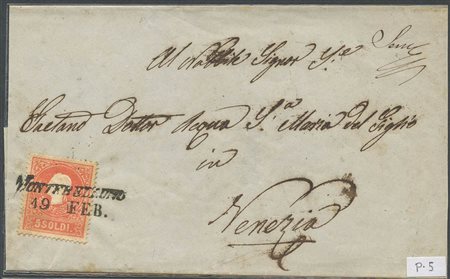 Al Nobile Signor Sig.e
Gaetano Dottor Acqua S.a Maria del Giglio
in
Venezia
MONTEBELLUNO
19 FEB.
5 SOLDI
P.5